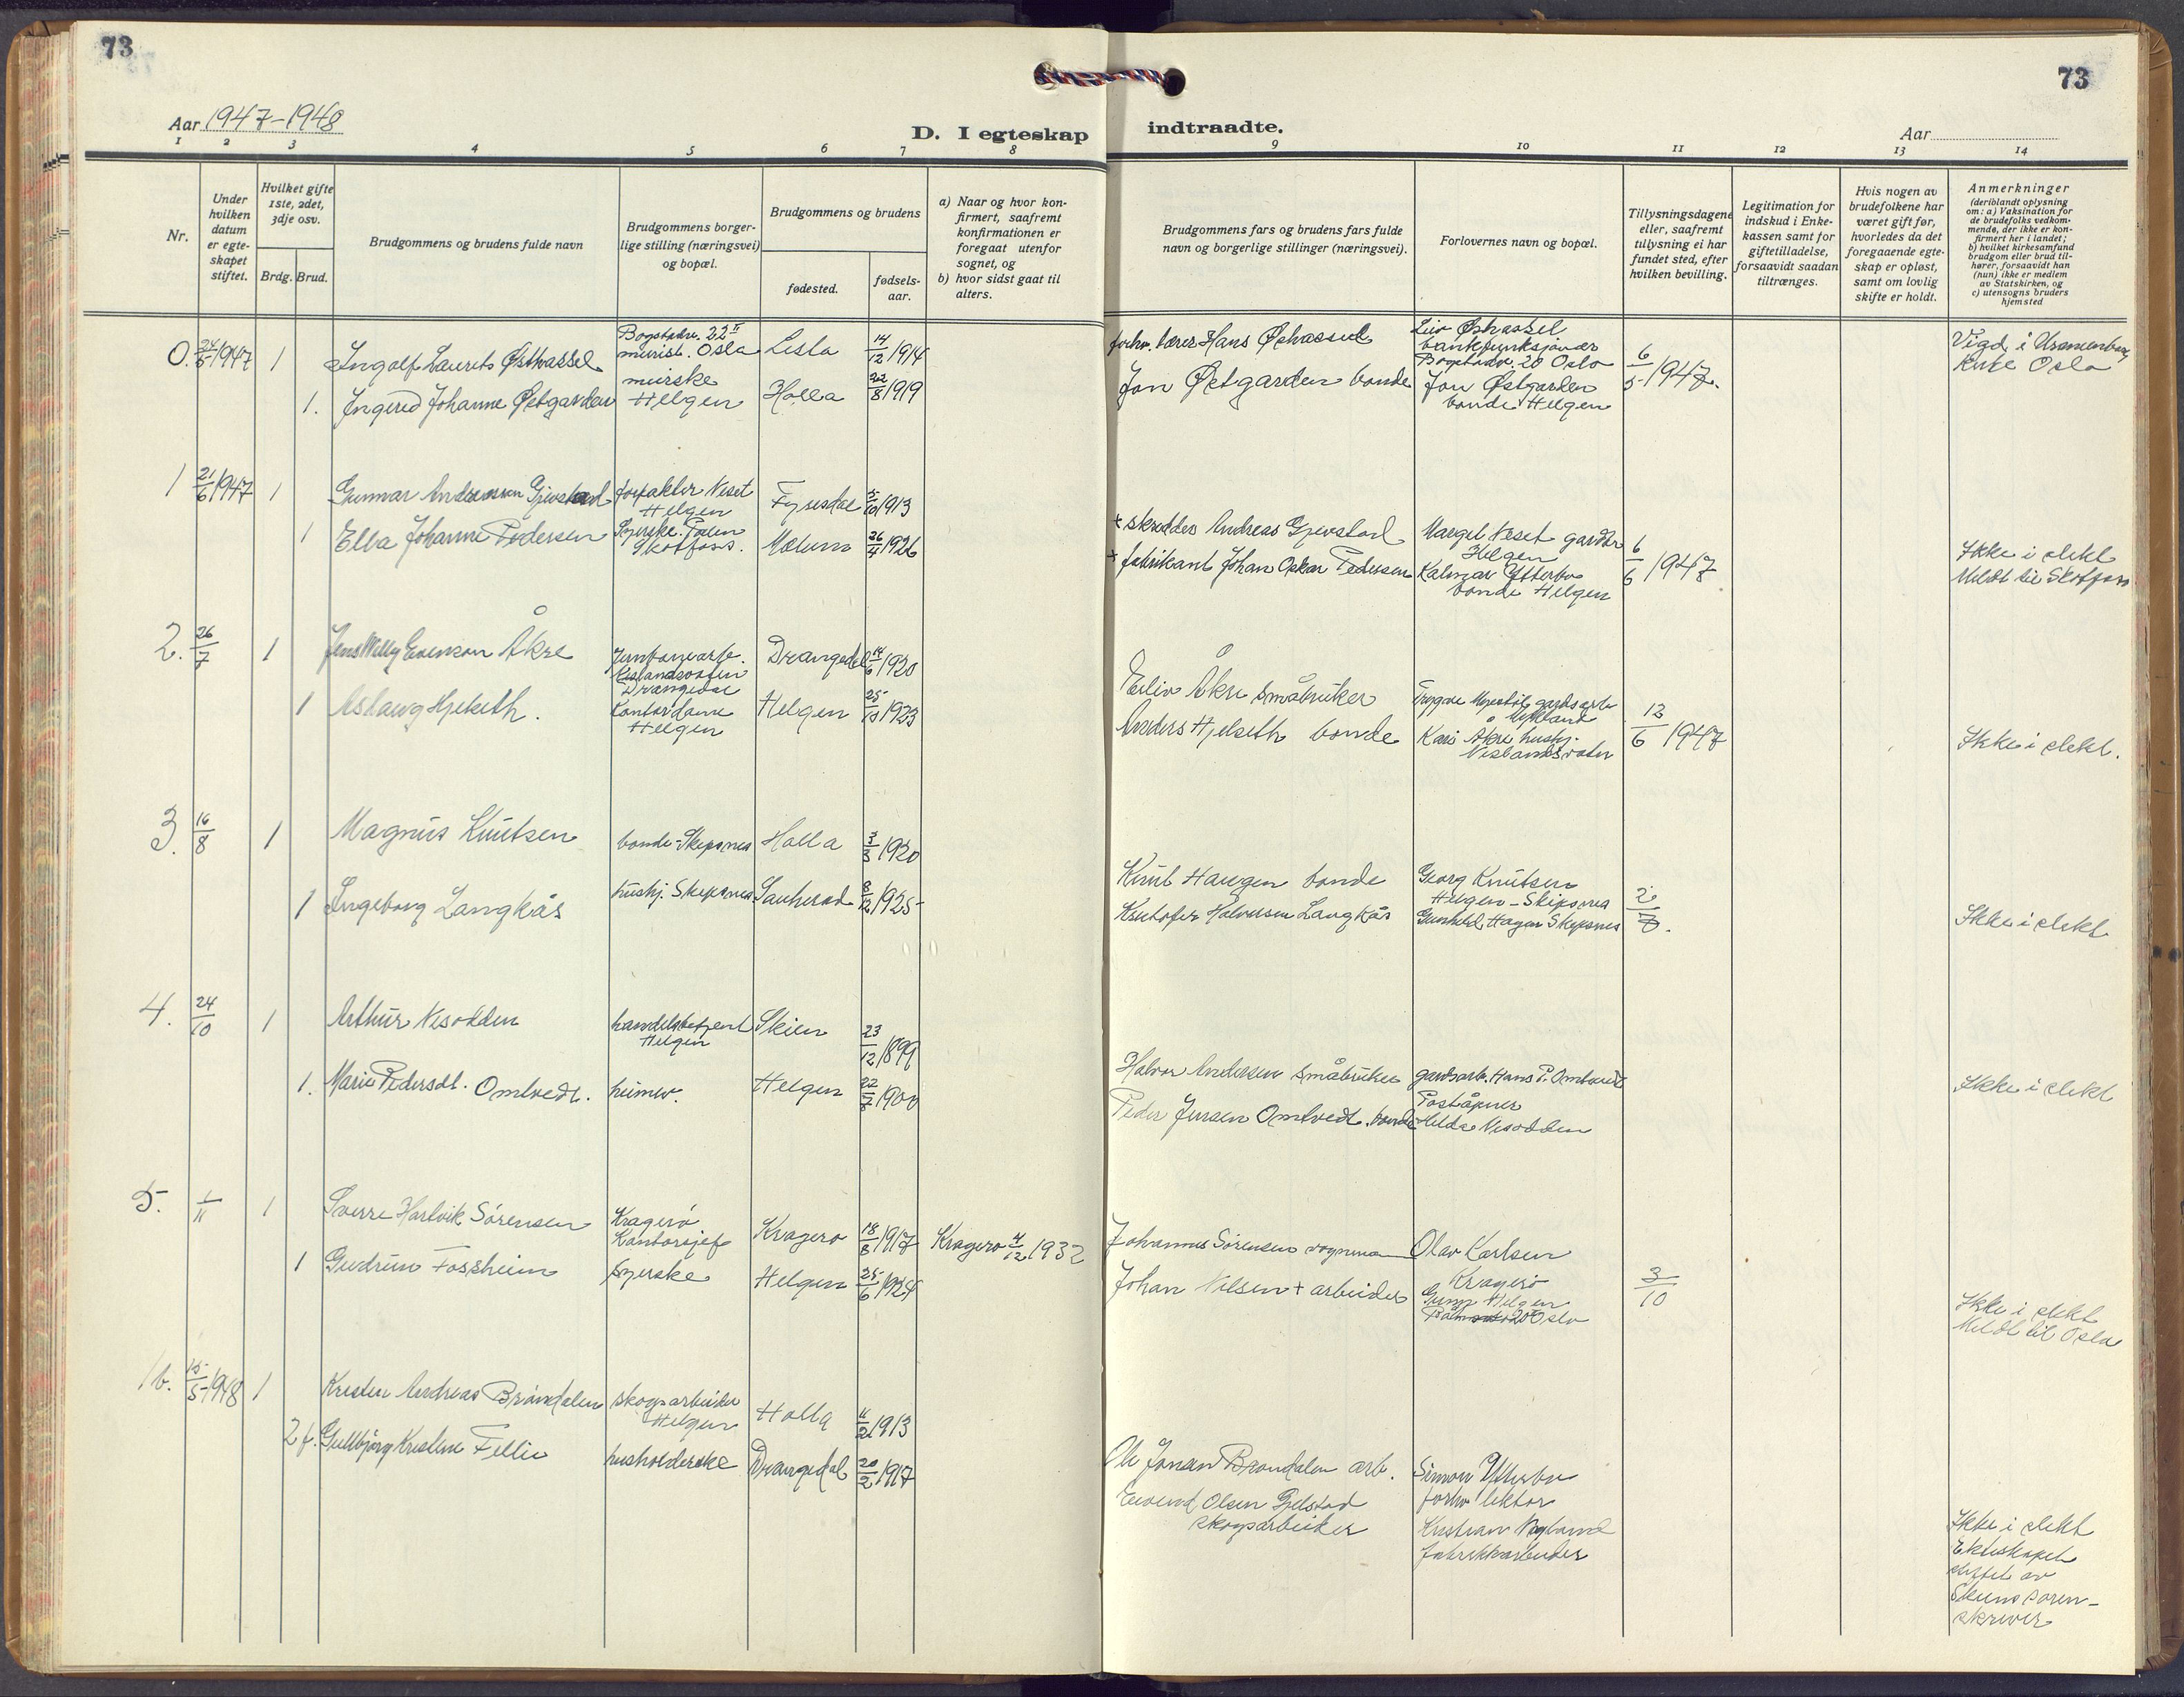 73
73
Aar 1947-1948
D. I egteskap indtraadte.
Aar
1 2 3 4 5 6 7 8 9 10 11 12 13 14
Nr.
Under hvilken datum er egteskapet stiftet.
Hvilket gifte 1ste, 2det, 3dje osv.
Brdg. Brud.
Brudgommens og brudens fulde navn
Brudgommens borgerlige stilling (næringsvei) og bopæl.
Brudgommens og brudens
fødested.
fødselsaar.
a) Naar og hvor konfirmert, saafremt konfirmationen er foregaat utenfor sognet, og
b) hvor sidst gaat til alters.
Brudgommens fars og brudens fars fulde navn og borgerlige stillinger (næringsvei).
Forlovernes navn og bopæl.
Tillysningsdagene eller, saafremt tillysning ei har fundet sted, efter hvilken bevilling.
Legitimation for indskud i Enkekassen samt for giftetilladelse, forsaavidt saadan tiltrænges.
Hvis nogen av brudefolkene har været gift før, hvorledes da det foregaaende egteskap er opløst, samt om lovlig skifte er holdt.
Anmerkninger (deriblandt oplysning om: a) Vaksination for de brudefolks vedkommende, der ikke er konfirmert her i landet; b) hvilket kirkesamfund brudgom eller brud tilhører, forsaavidt han (hun) ikke er medlem av Statskirken, og c) utensogns bruders hjemsted
0. 24/5 1947 1 Ingolf Laurits Østhassel
Oslo Lista 14/12 1914
Hans Østhassel
Leiv Østhassel
bankfunksjonær
20 Oslo
6/5 1947.
Vigd i Uranienborg
Oslo
1. Ingerid Johanne Østgarden
Helgen Holla 22/8 1919
Jon Østgarden bonde
Jon Østgarden
bonde Helgen
1 21/6 1947 1 Gunnar Andreassen Gjevstad
Neset
Helgen Fyresdal 5/10 1913
+ skredder Andreas Gjevstad
Margit Neset
Helgen
6/6 1947
1 Ella Johanne Pedersen
Syerske
Skotfoss. Melum 26/4 1926
+ fabrikant Johan Oskar Pedersen
Kalmar Ytterbø
bonde Helgen
Ikke i slekt
Meldt til Skotfoss
2. 26/7 1 Jens Willy Evensen Åkre
Drangedal
Drangedal 14/6 1920
Eiliv Åkre småbruker
12/6 1947
1 Aslaug Hjelseth.
Kontordame
Helgen Helgen 25/10 1923
Anders Hjelseth bonde
Kari Åkre hushj.
Ikke i slekt.
3. 16/8 1 Magnus Knutsen
bonde Skipsnes Holla 3/3 1920
Knut Haugen bonde
Georg Knutsen
Helgen - Skipsnes
2/7.
1 Ingeborg Langkås
hushj. Skipsnes Sauherad 8/12 1925
Kristofer Halvorsen Langkås
Gunhild Hagen Skipsnes
Ikke i slekt
4. 24/10 1 Arthur Nesodden
handelsbetjent
Helgen Skien 23/12 1899
Halvor Andersen småbruker
gardsarb. Hans P. Omtvedt
1. Marie Pedersdt. Omtvedt.
heimev. Helgen 22/7 1900
Peder Jensen Omtvedt. bonde
Poståpner
Hilda Nesodden
Ikke i slekt
5. 1/11 1 Sverre Hartvik Sørensen
Kragerø
Kontorsjef Kragerø 18/8 1917
Kragerø 4/12 1932
Johannes Sørensen vognmann
Olav Karlsen
Kragerø
3/10
1 Gudrun Fossheim
Syerske Helgen 25/6 1924
Johan Nilsen + arbeider
Helgen
Oslo
Ikke i slekt
Meldt til Oslo
1b. 15/5 1948 1 Kristen Andreas Brøndalen
skogsarbeider
Helgen Holla 11/2 1913
Ole Jonsen Brøndalen arb.
Simon Ytterbø
forhv. lektor
2 f. Gullbjørg Kristine Tellie
husholderske Drangedal 20/2 1917
Eivind Olsen Gjelstad
skogsarbeider
Kristian
fabrikkarbeider
Ikke i slekt
Ekteskapet
stiftet av
Skiens soren-
skriver